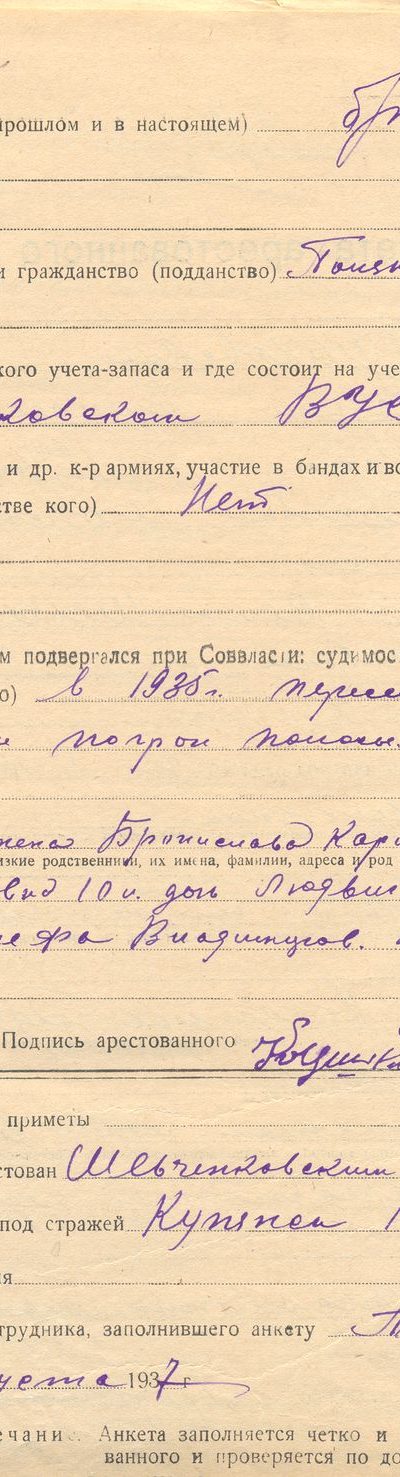 прошлом и в настоящем)
и гражданство (подданство)
кого учета-запаса и где состоит на уче
ковском ВУС
и др. к-р армиях, участие в бандах и во
стве кого) Нет
м подвергался при Соввласти: судимос
о) в 1935 г. пересе
погрон полосы
жена Бронислава Кар
изкие родственники, их имена, фамилии, адреса и род
10 л. дочь Людвиг
Подпись арестованного
приметы
стован Шевченковским
под стражей
ия
трудника, заполнившего анкету
густа 1937 г
ечание. Анкета заполняется четко и
ванного и проверяется по до